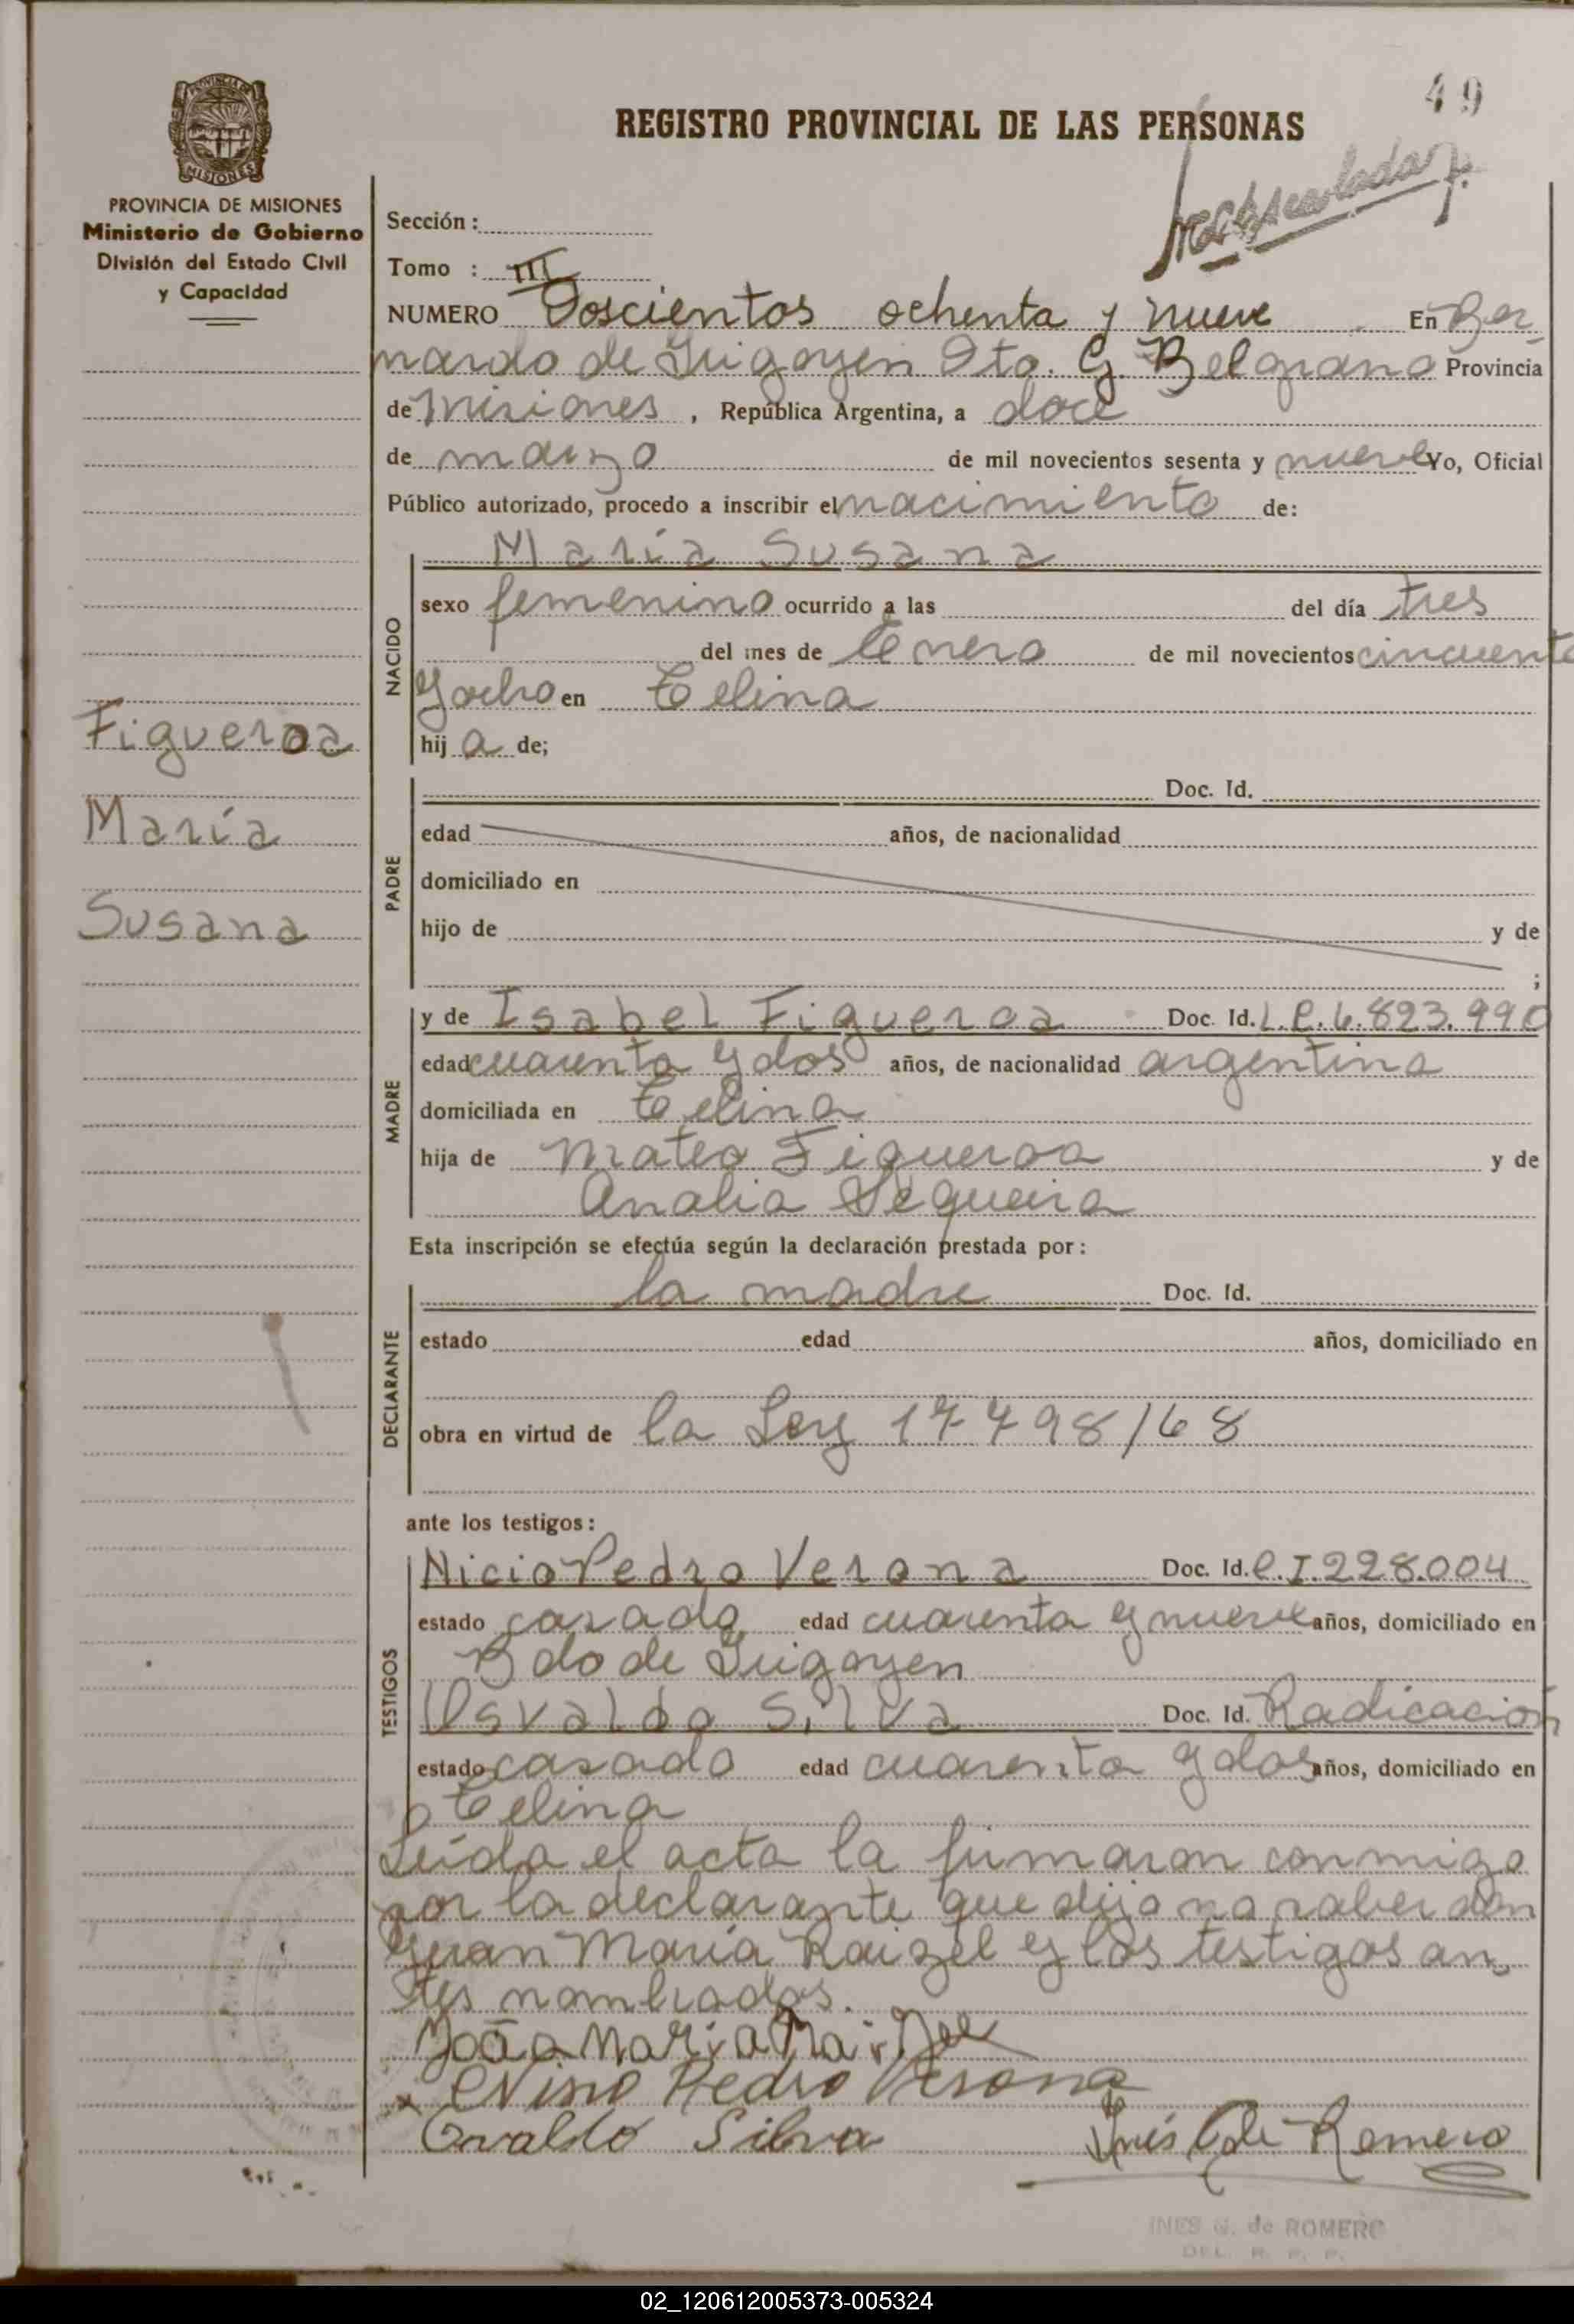 49
REGISTRO PROVINCIAL DE LAS PERSONAS
PROVINCIA DE MISIONES
Ministerio de Gobierno
División del Estado Civil
y Capacidad
Sección :
Tomo : III
NUMERO Doscientos ochenta y nueve En Ber-
nardo de Irigoyen Dto. G. Belgrano Provincia
de Misiones , República Argentina, a doce
de marzo de mil novecientos sesenta y nueve Yo, Oficial
Público autorizado, procedo a inscribir el nacimiento de:
NACIDO
María Susana
sexo femenino ocurrido a las del día tres
del mes de Enero de mil novecientos cincuenta
y ocho en Celina
hij a de;
Figueroa
María
Susana
PADRE
Doc. Id.
edad años, de nacionalidad
domiciliado en
hijo de y de
;
MADRE
y de Isabel Figueroa Doc. Id. L.C. 6.823.990
edad cuarenta y dos años, de nacionalidad argentina
domiciliada en Celina
hija de Mateo Figueroa y de
Analia Sequeira
Esta inscripción se efectúa según la declaración prestada por:
DECLARANTE
la madre Doc. Id.
estado edad años, domiciliado en
obra en virtud de la Ley 17498/68
ante los testigos:
TESTIGOS
Nicio Pedro Verona Doc. Id. C.I. 228.004
estado casado edad cuarenta y nueve años, domiciliado en
Bdo de Irigoyen
Osvaldo Silva Doc. Id. Radicación
estado casado edad cuarenta y dos años, domiciliado en
Celina
Leída el acta la firmaron conmigo
por la declarante que dijo no saber don
Juan María Raizel y los testigos an-
tes nombrados.
João Maria
Pedro Verona
Osvaldo Silva Inés G de Romero
INES G. de ROMERO
DEL. R. P. P.
02_120612005373-005324